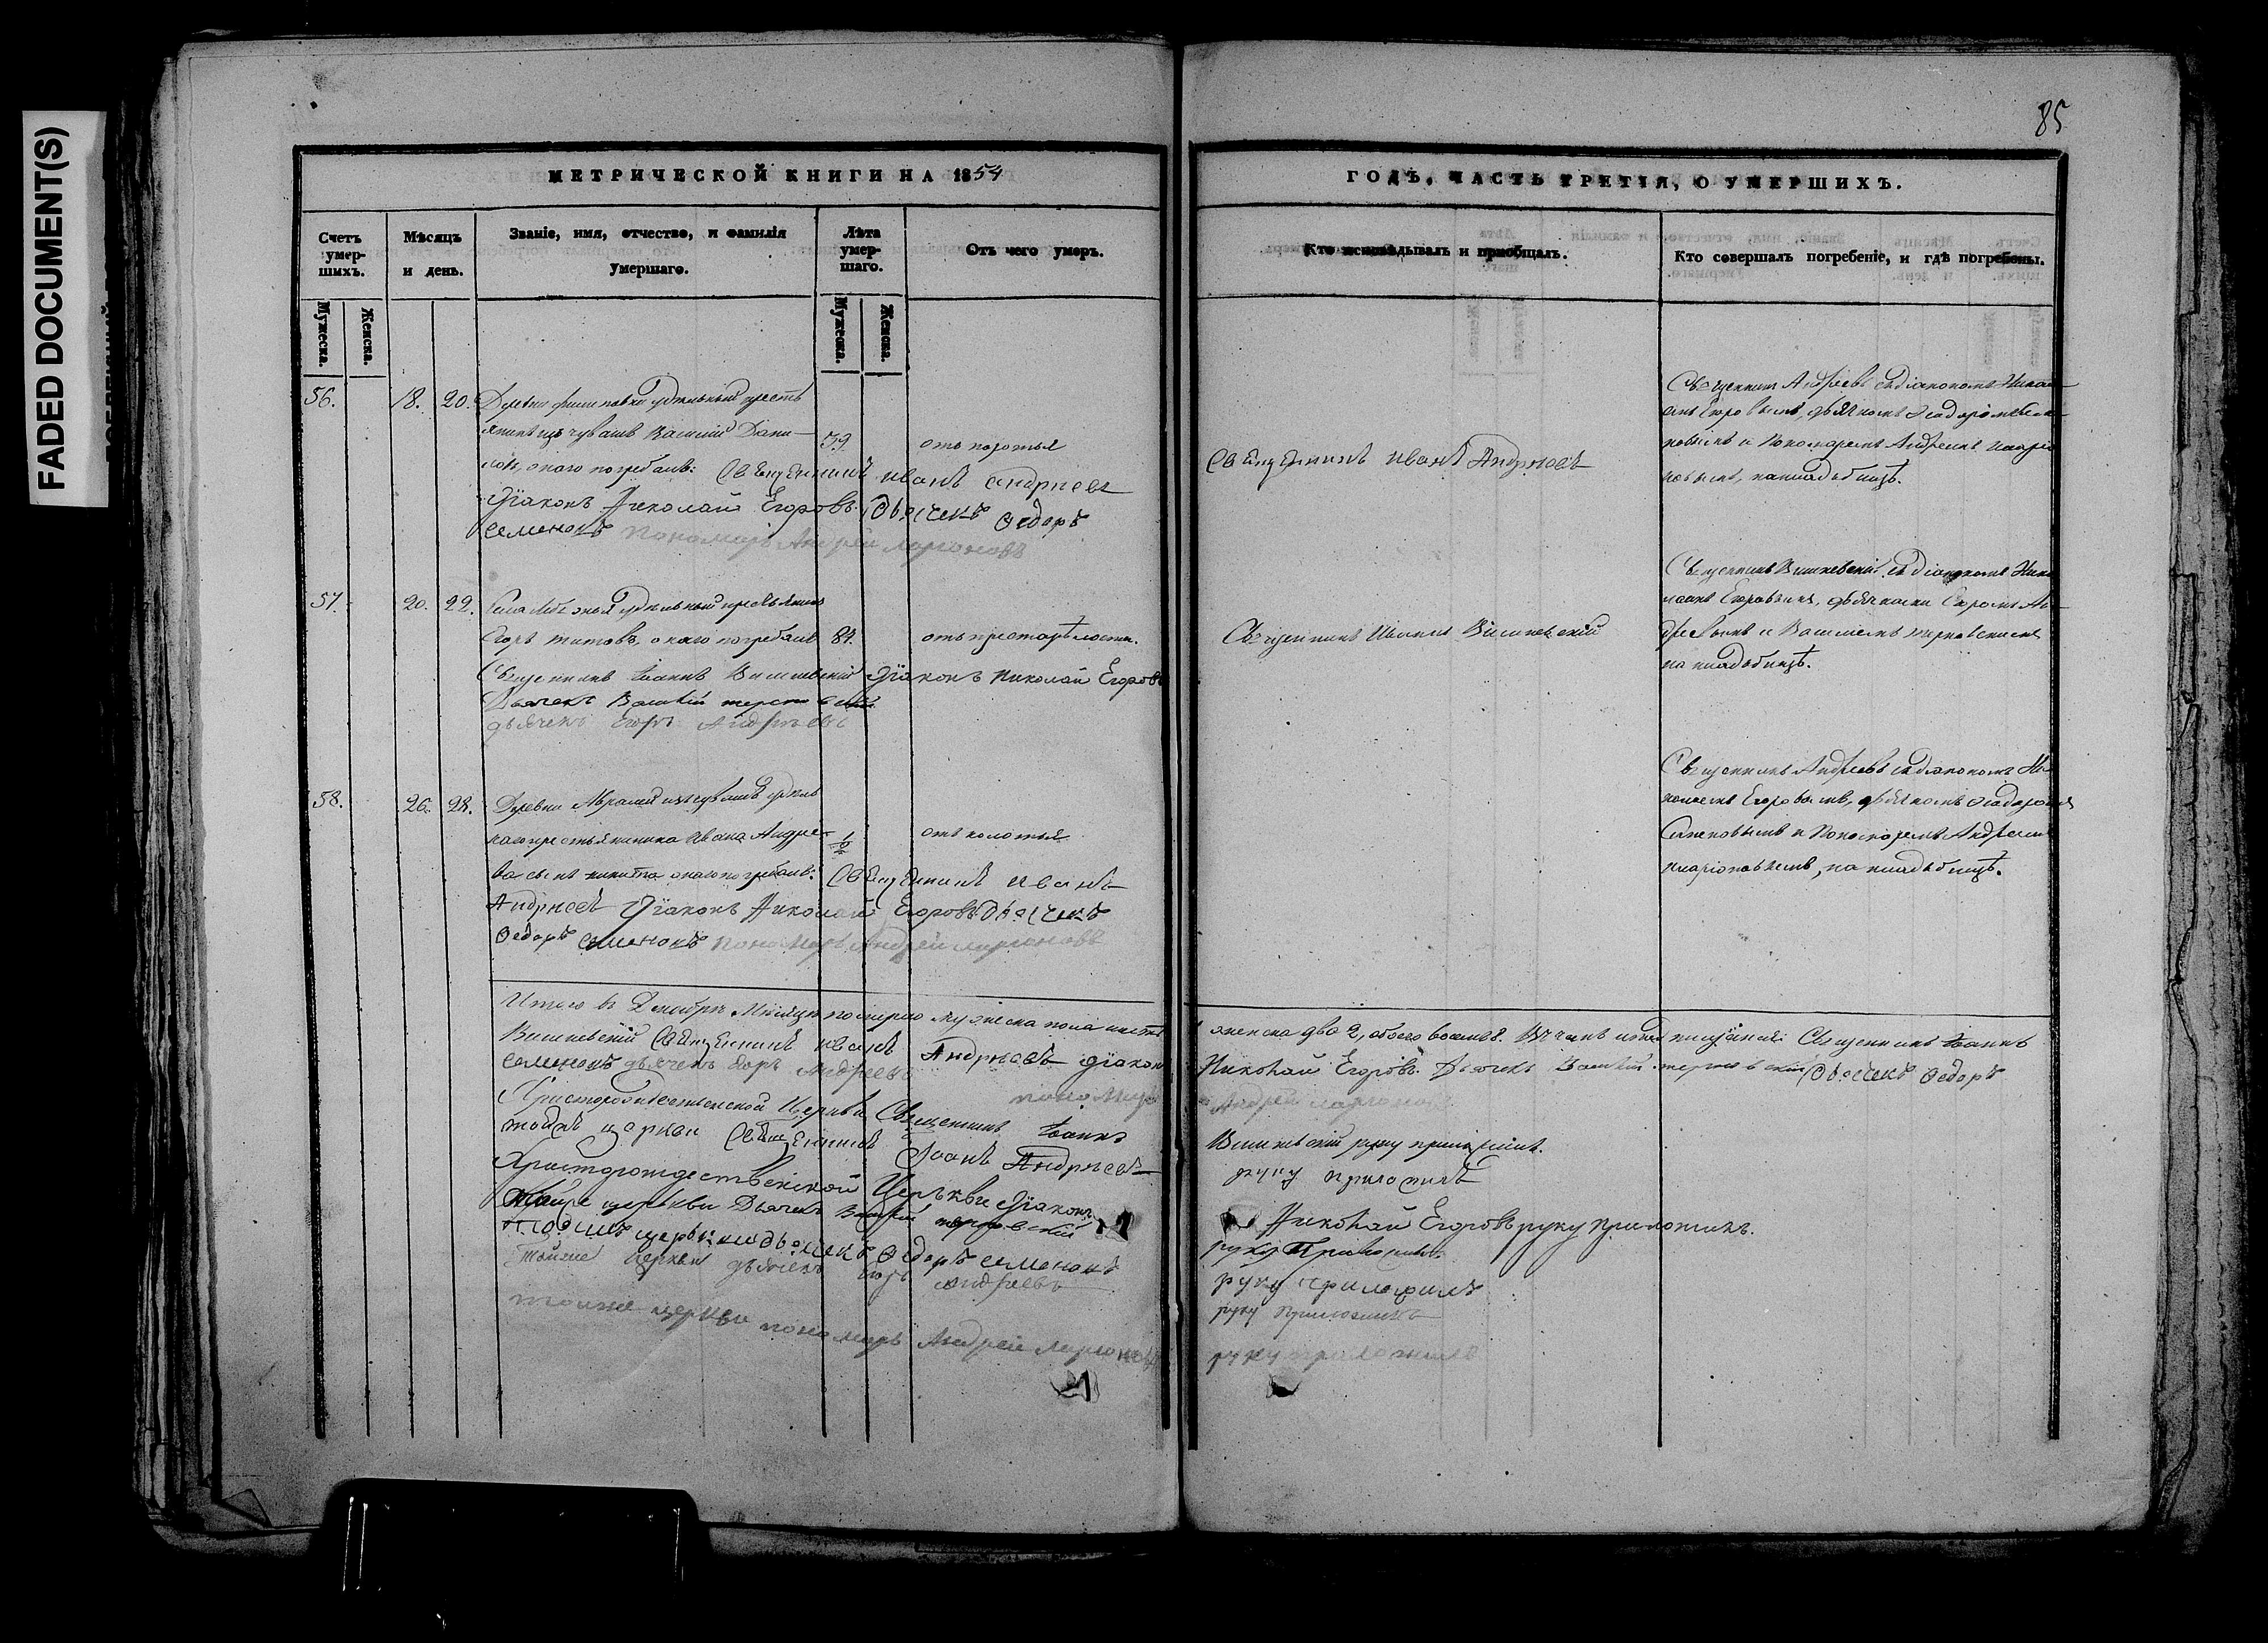 FADED DOCUMENT(S)
85
МЕТРИЧЕСКОЙ КНИГИ НА 1854
ГОДЪ, ЧАСТЬ ТРЕТІЯ, О УМЕРШИХЪ.
Счетъ умер-шихъ.
Мѣсяцъ и день.
Званіе, имя, отчество, и фамилія умершаго.
Лѣта умер-шаго.
Отъ чего умеръ.
Кто исповѣдывалъ и пріобщалъ.
Кто совершалъ погребеніе, и гдѣ погребены.
Мужеска.
Женска.
Мужеска.
Женска.
56. 18. 20.
Деревни удѣльный кресть-
янинъ изъ чувашъ Василій Дани-
39
лов, онаго погребалъ: Священникъ Иванъ Андреевъ
Діаконъ Николай Егоровъ. Дьячекъ Ѳедоръ
Семеновъ пономарь Андрей Ларіоновъ
Священникъ Иванъ Андреевъ
Священникъ Андреевъ съ діакономъ Никол-
аемъ Егоровымъ, дьячкомъ Ѳеодоромъ Семе-
новымъ и Пономаремъ Андреемъ Иларіо-
новымъ, на кладбищѣ.
57. 20. 22.
Села удѣльный крестьянинъ
Егоръ Титовъ, онаго погребалъ 84. отъ престарѣлости.
Священникъ Іоаннъ Вишневскій Діаконъ Николай Егоровъ
Дьячекъ Василій
дьячекъ Егоръ Андреевъ
Священникъ Іоаннъ Вишневскій
Священникъ Вишневскій съ діакономъ Нико-
лаемъ Егоровымъ, дьячками Егоромъ Ан-
дреевымъ и Василіемъ
на кладбищѣ.
58. 26. 28.
Деревни изъ чувашъ удѣль-
наго крестьянина Ивана Андре-
1/2 отъ колотья
ва сынъ Никита онаго погребалъ: Священникъ Иванъ
Андреевъ Діаконъ Николай Егоровъ. дьячекъ
Ѳедоръ Семеновъ пономарь Андрей Ларіоновъ
Священникъ Андреевъ съ діакономъ Ни-
колаемъ Егоровымъ, дьячкомъ Ѳеодоромъ
Семеновымъ и Пономаремъ Андреемъ
Иларіоновымъ, на кладбищѣ.
Итого въ Декабрѣ Мѣсяцѣ померло мужеска пола шесть
женска два 2, обоего восемь. Священникъ Іоаннъ
Вишневскій Священникъ Иванъ Андреевъ діаконъ
Николай Егоровъ. Дьячекъ Василій Дьячекъ Ѳедоръ
Семеновъ дьячекъ Егоръ Андреевъ пономарь
Андрей Ларіоновъ
Христорождественской Церкви Священникъ Іоаннъ
Вишневскій руку приложилъ.
тойже церкви Священникъ Іоанъ Андреевъ
руку приложилъ
Христорождественской Церькви Діаконъ
Николай Егоровъ руку приложилъ.
тойже церькви Дьячекъ Василій
руку приложилъ
дьячекъ Ѳедоръ Семеновъ
руку приложилъ
тойже церкви дьячекъ Егоръ Андреевъ
руку приложилъ
тойже церкви пономарь Андрей Ларіоновъ
руку приложилъ